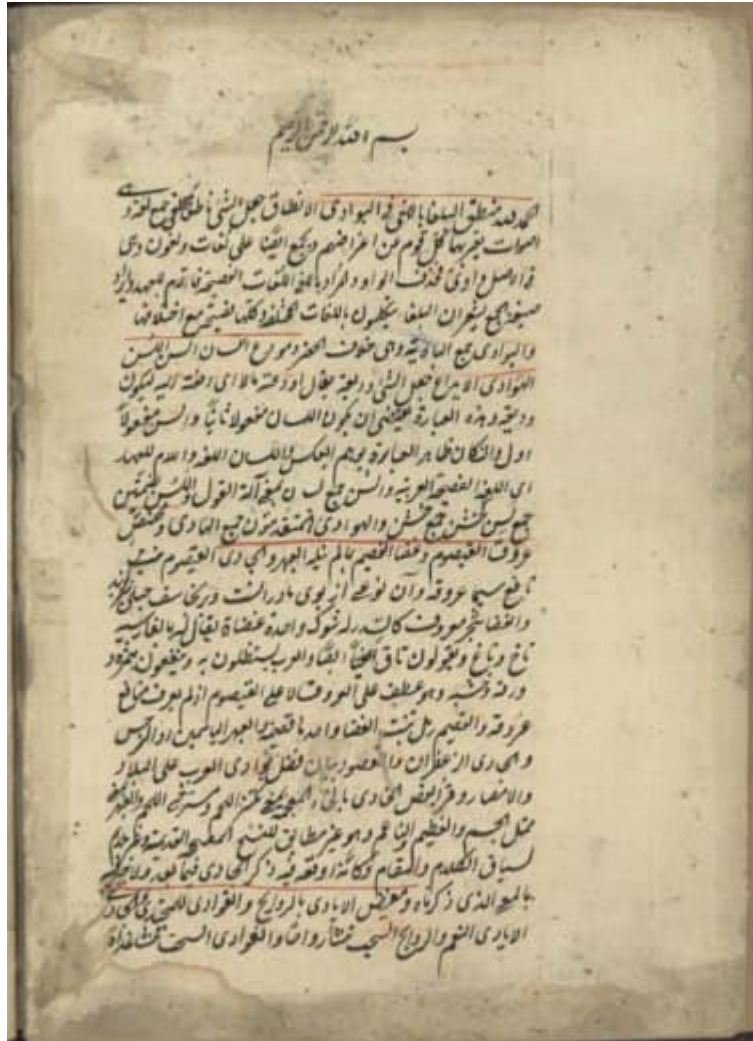 بسم الله الرحمن الرحيم
الحمد لله منطق البلغا باللغى فى البوادى الانطاق جعل الشى ناطقا واللغى جمع لغة وهى
اصوات يعبر بها كل قوم من اغراضهم ويجمع ايضا على لغات ولغون وهى
فى الاصل فحذف الواو والمراد باللغى اللغات الفصيحة فاللام للعهد وايراد
صيغة الجمع ليشعر ان البلغا يتكلمون باللغات المختلفة وكلها فصيحة مع اختلافها
والبوادى جمع البادية وهى خلاف الحضر ومودع اللسان السن اللسن
الهوادى الايداع جعل الشى وديعة يقال اودعته مالا اى دفعته اليه ليكون
وديعة وهذه العبارة تقتضى ان يكون اللسان مفعولا ثانيا والسن مفعولا
اول وان كان ظاهر العبارة يوهم العكس واللسان اللغة واللام للعهد
اى اللغة الفصيحة العربية والسن جمع لسان بمعنى آلة القول واللسن بضمتين
جمع لسن كخشن جمع خشن والهوادى المتقدمون جمع الهادى ومخصص
عروق القيصوم وغضا القصيم بما لم ينله العبهر والجادى القيصوم نبت
نافع سيما عروقه وآن نوعى از بوى مادران است وبرنجاسف جبلى
والغضا شجر معروف له شوك واحده غضاة يقال له بالفارسية
تاخ وتاغ ويقولون تاق ايضا والعرب يستظلون به وينتفعون بثمره و
ورقه وخشبه وهو عطف على العروق لا على القيصوم اذ لم يعرف منافع
عروقه والقصيم رمل ينبت الغضا واحد باقصمة والعبهر الياسمين او النرجس
والجادى الزعفران والمقصود بيان فضل بوادى العرب على البلاد
والامصار وقرأ بعض الجادى
ممتلى الجسم والعظيم والناعم وهو غير مطابق للنسخ المصححة القديمة
لسياق الكلام والمقام وكانه اوقعه فيه ذكر الجادى فيما بعد
بالمعنى الذى ذكرناه ومفيض الايادى بالروايح والغوادى للمجتدى والجادى
الايادى النعم والروايح السحب تنشأ رواحا والغوادى السحب تنشأ غداة